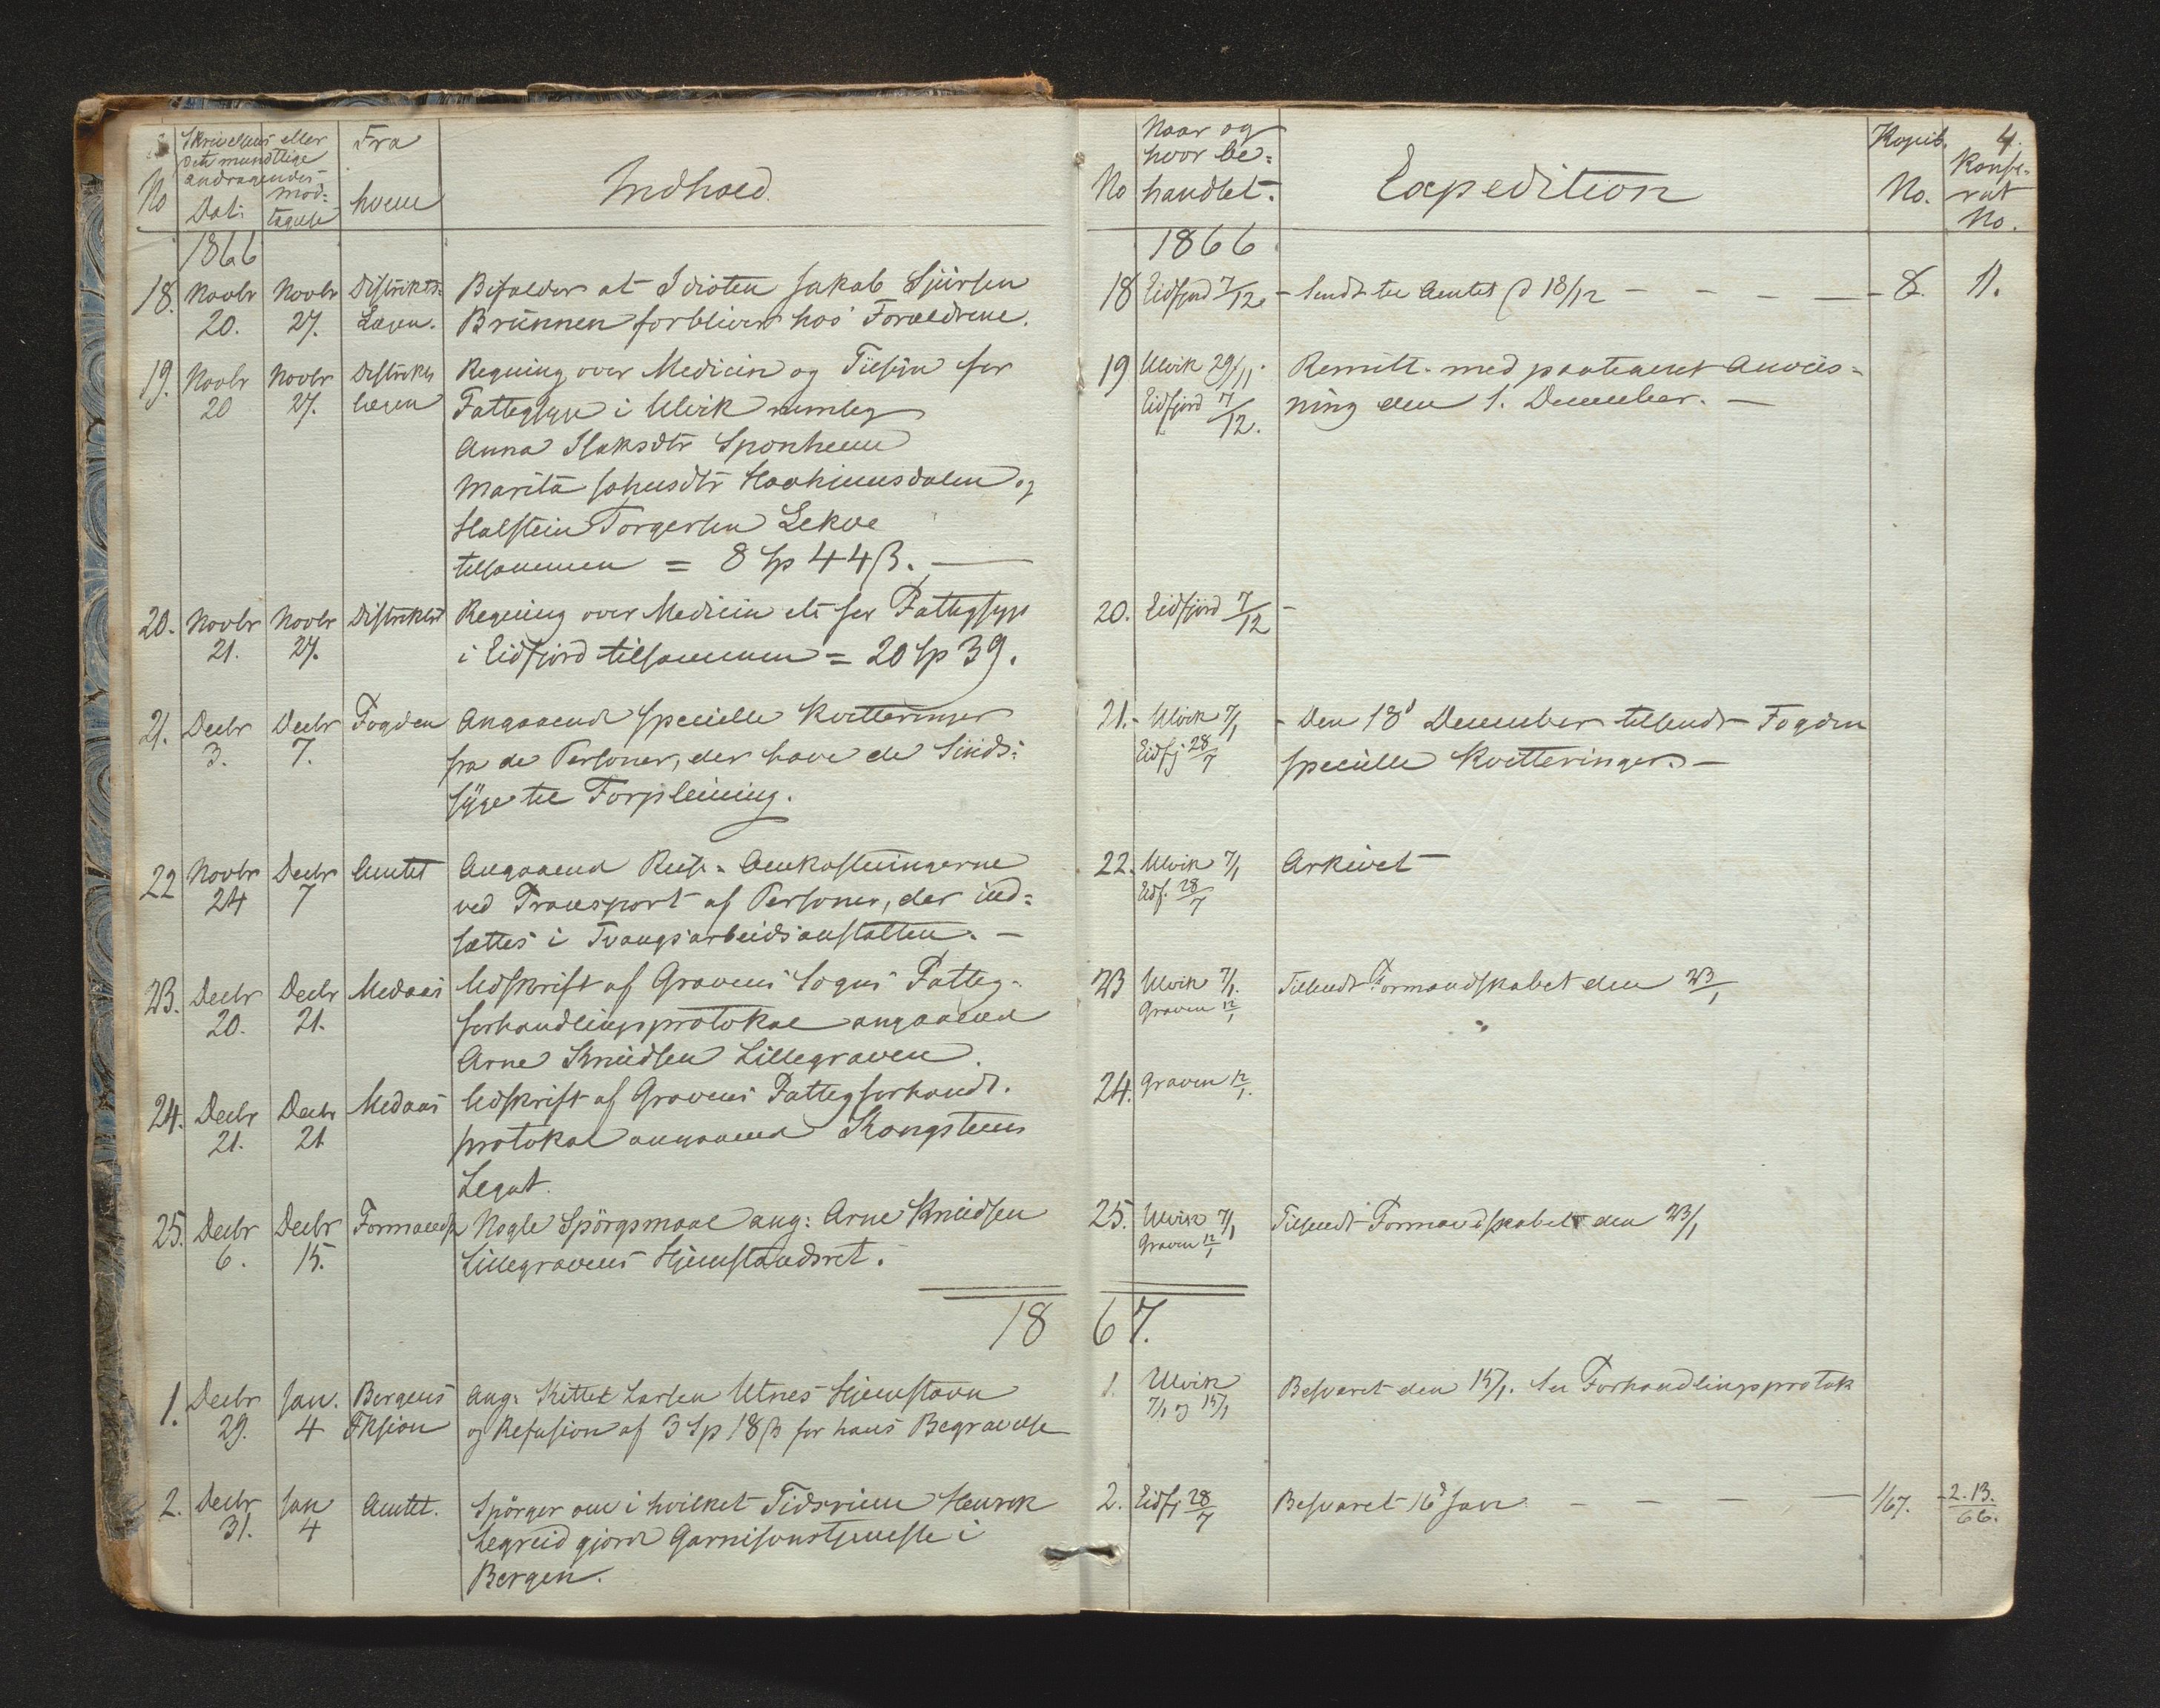 Skrivelsens eller
det mundtlige
andragendes
No
Dat:
mod=
tagelse
Fra
hvem
Indhold.
1866
18. Novbr 20. Novbr 27. Distrikts=
Lægen.
Befaler at Idioten Jakob Sjursen
Brunnen forbliver hos Forældrene.
19. Novbr 20 Novbr 27. Distrikts
lægen
Regning over Medicin og Tilsyn for
Fattigsyge i Ulvik nemlig
Anna Isaksdtr Sponheim
Marita Johnsdtr Haaheimsdalen og
Halstein Torgersen Lekve
tilsammen = 8 Sp 44 ß. —
20. Novbr 21. Novbr 27. Distriktsl
Regning over Medicin etc for Fattigsyge
i Eidfjord tilsammen = 20 Sp 39.
21. Decbr 3. Decbr 7. Fogden
Angaaende specielle Kvitteringer
fra de Personer, der have de Sinds=
syge til Forpleining.
22 Novbr 24 Decbr 7 Amtet
Angaaende Reise-Omkostningerne
ved Transport af Personer, der ind=
sættes i Tvangsarbeidsanstalten. —
23. Decbr 20. Decbr 21. Medaas
Udskrift af Gravens Sogns Fattig-
forhandlingsprotokol angaaende
Arne Knudsen Lillegraven.
24. Decbr 21. Decbr 21 Medaas
Udskrift af Gravens Fattigforhandl.
protokol angaaende Kongsteens
Legat.
25. Decbr 6. Decbr 15. Formandsk
Nogle Spörgsmaal ang: Arne Knudsen
Lillegravens Hjemstandsret.
18
1. Decbr 29. Jan. 4 Bergens
Fksion
Ang: Kittel Larsen Utnes Hjemstavn
og Refusion af 3 Sp 18 ß for hans Begravelse
2. Decbr 31. Jan 4 Amtet.
Spörger om i hvilket Tidsrum Henrik
Legreid gjorde Garnisonstjeneste i
Bergen.
4.
No
Naar og
hvor be=
handlet.
Expedition
Kopib.
No.
Konfe-
rat
No.
1866
18 Eidfjord 7/12. - Sendt til Amtet d 18/12 - - - - 8. 11.
19 Ulvik 29/11. Remitt. med paategnet Anviis=
Eidfjord 7/12. ning den 1. December. —
20. Eidfjord 7/12 -
21. - Ulvik 7/1 - Den 18d December tilsendt Fogden
Eidfj 28/7 specielle Kvitteringer. —
22. Ulvik 7/1 Arkivet
Eidf. 28/7
23 Ulvik 7/1. Tilsendt Formandskabet den 23/1
Graven 12/1
24. Graven 12/1.
25. Ulvik 7/1 Tilsendt Formandskabet den 23/1
Graven 12/1
67.
1. Ulvik Besvaret den 15/1. Se Forhandlingsprotok
7/1 og 15/1
2. Eidfj 28/7 Besvaret 16d Jan - - - — 1/67. 2.13.
66.